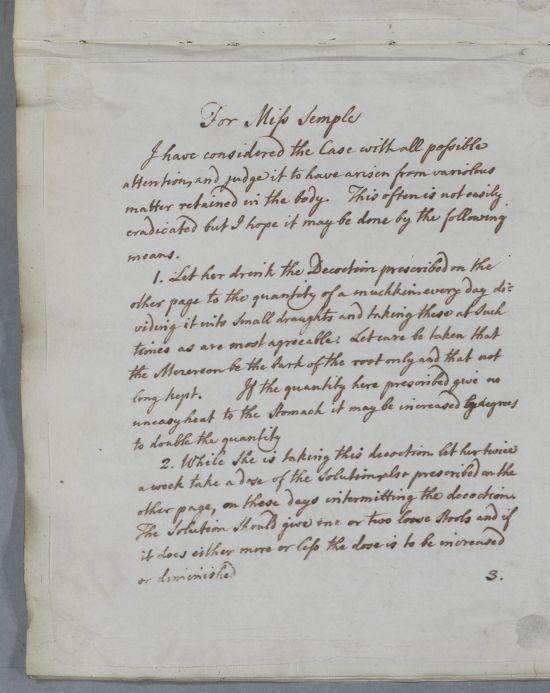 For Miss Semple
I have considered the Case with all possible
attention, and judge it to have arisen from variolous
matter retained in the body. This often is not easily
eradicated but I hope it may be done by the following
means.
1. Let her drink the Decoction prescribed on the
other page to the quantity of a muchkin every day di=
viding it into small draughts and taking these at such
times as are most agreeable. Let care be taken that
the Mezereon be the bark of the root only and that not
long kept. If the quantity here prescribed give no
uneasy heat to the Stomach it may be increased by degrees
to double the quantity
2. While She is taking this decoction let her twice
a week take a dose of the Solution also prescribed on the
other page, on these days intermitting the decoction.
The Solution should give one or two loose stools and if
it does either more or less the dose is to be increased
or diminished
3.